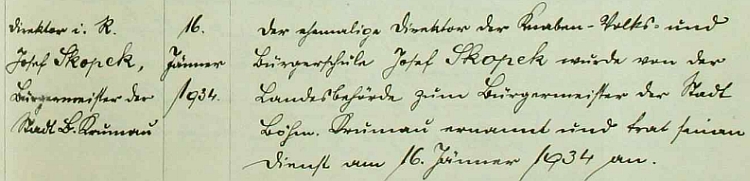 Direktor i. R.
Josef Skopek,
Bürgermeister der
Stadt B. Krumau
16.
Jänner
1934.
Der ehemalige Direktor der Knaben-Volks- und
Bürgerschule Josef Skopek wurde von der
Landesbehörde zum Bürgermeister der Stadt
Böhm. Krumau ernannt und trat seinen
Dienst am 16. Jänner 1934 an.